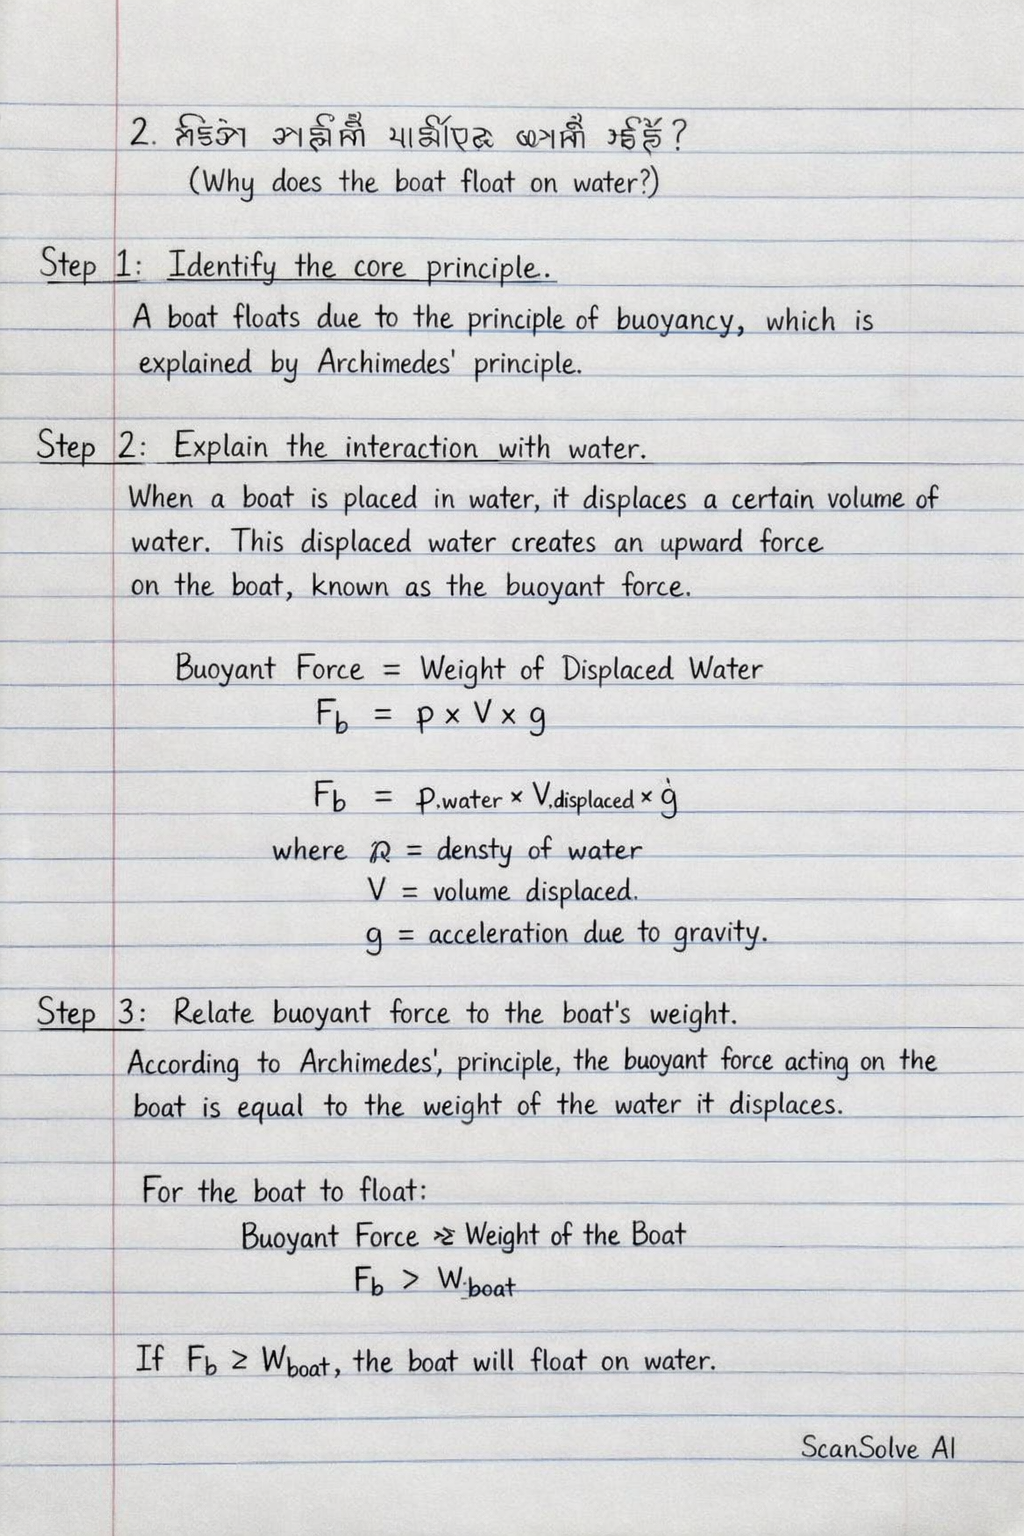 2. ?
(Why does the boat float on water?)
Step 1: Identify the core principle.
A boat floats due to the principle of buoyancy, which is
explained by Archimedes' principle.
Step 2: Explain the interaction with water.
When a boat is placed in water, it displaces a certain volume of
water. This displaced water creates an upward force
on the boat, known as the buoyant force.
Buoyant Force = Weight of Displaced Water
Fb = p × V × g
Fb = p.water × V.displaced × ġ
where = densty of water
V = volume displaced.
g = acceleration due to gravity.
Step 3: Relate buoyant force to the boat's weight.
According to Archimedes', principle, the buoyant force acting on the
boat is equal to the weight of the water it displaces.
For the boat to float:
Buoyant Force ≥ Weight of the Boat
Fb > W.boat
If Fb ≥ Wboat, the boat will float on water.
ScanSolve AI